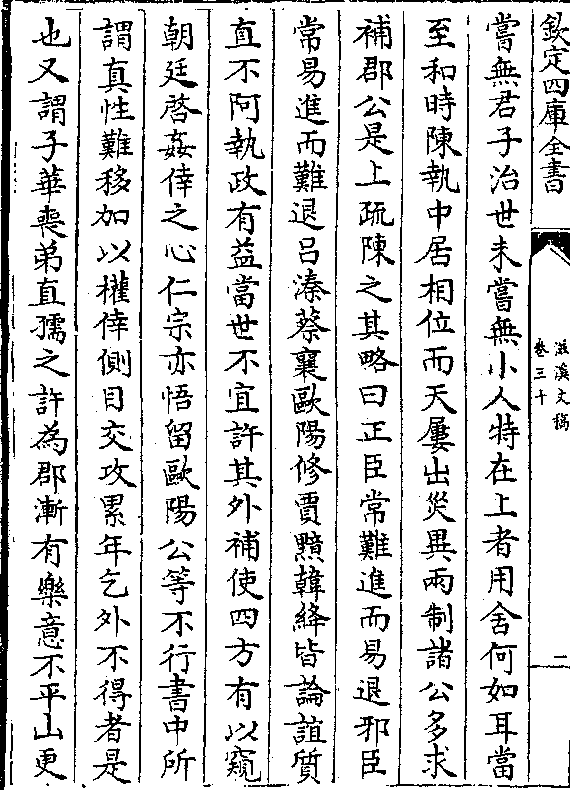 欽定四庫全書
滋溪文稿
卷三十
二
嘗無君子治世未嘗無小人特在上者用舍何如耳當
至和時陳執中居相位而天屢出災異兩制諸公多求
補郡公是上疏陳之其略曰正臣常難進而易退邪臣
常易進而難退吕溱蔡襄歐陽修賈黯韓絳皆論誼質
直不阿執政有益當世不宜許其外補使四方有以窺
朝廷啓姦倖之心仁宗亦悟留歐陽公等不行書中所
謂真性難移加以權倖側目交攻累年乞外不得者是
也又謂子華喪弟直孺之許為郡漸有樂意不平山更